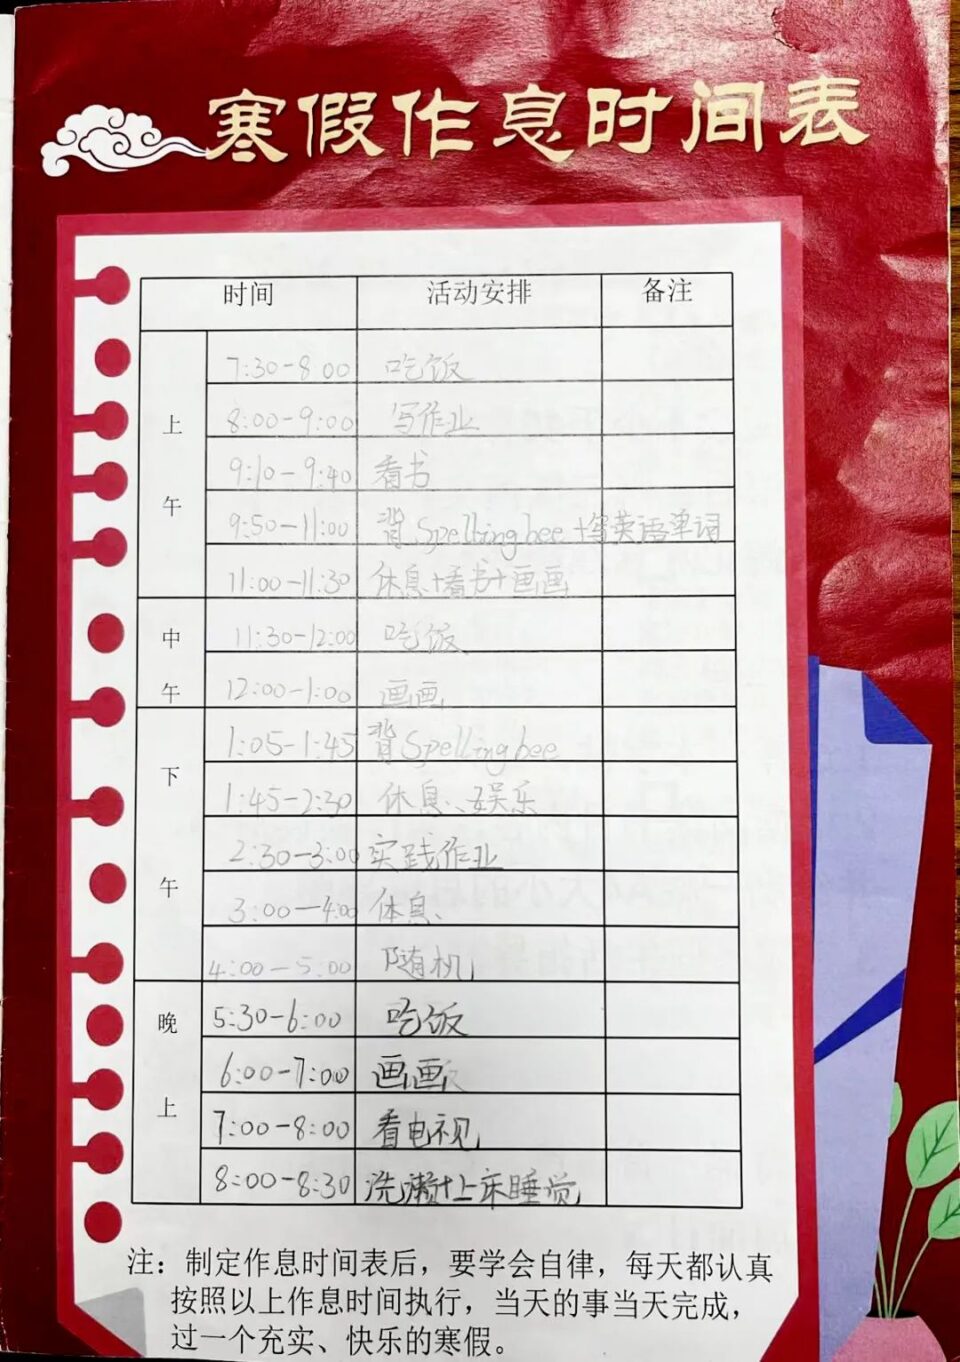 寒假作息时间表
时间 活动安排 备注
上午
7:30-8:00 吃饭
8:00-9:00 写作业
9:10-9:40 看书
9:50-11:00 背Spelling bee+写英语单词
11:00-11:30 休息+看书+画画
中午
11:30-12:00 吃饭
12:00-1:00 画画
下午
1:05-1:45 背Spelling bee
1:45-2:30 休息、娱乐
2:30-3:00 实践作业
3:00-4:00 休息、
4:00-5:00 随机
晚上
5:30-6:00 吃饭
6:00-7:00 画画
7:00-8:00 看电视
8:00-8:30 洗漱+上床睡觉
注：制定作息时间表后，要学会自律，每天都认真
按照以上作息时间执行，当天的事当天完成，
过一个充实、快乐的寒假。